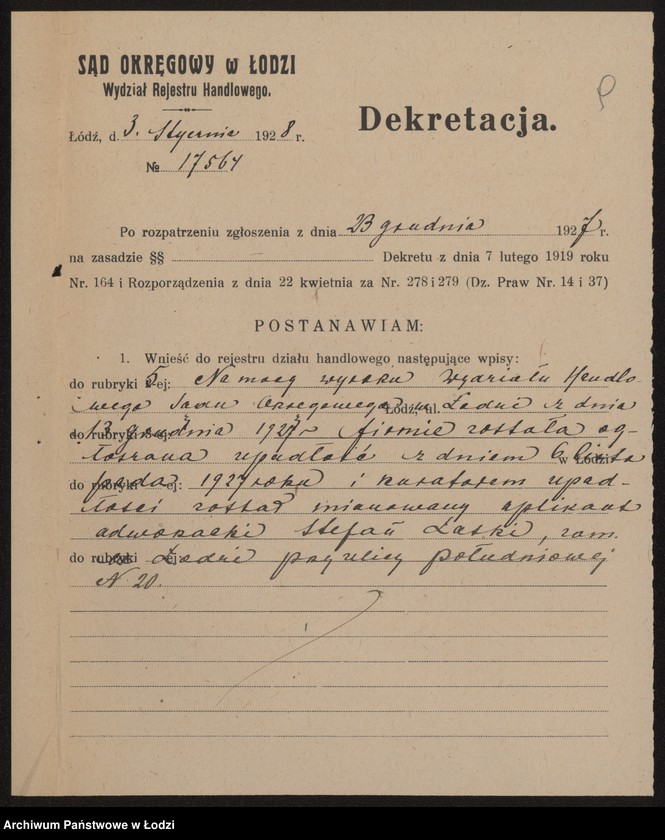 SĄD OKRĘGOWY w ŁODZI
Wydział Rejestru Handlowego.
Łódź, d. 3. Stycznia 1928 r.
№ 17564
Dekretacja.
Po rozpatrzeniu zgłoszenia z dnia 23 grudnia 1927 r.
na zasadzie §§ Dekretu z dnia 7 lutego 1919 roku
Nr. 164 i Rozporządzenia z dnia 22 kwietnia za Nr. 278 i 279 (Dz. Praw Nr. 14 i 37)
POSTANAWIAM:
1. Wnieść do rejestru działu handlowego następujące wpisy:
do rubryki 5-ej: Na mocy wyroku Wydziału Handlo-
wego Sądu Okręgowego w Łodzi z dnia
13 grudnia 1927 r firmie została og-
łoszona upadłość z dniem 6 listo
pada 1927 roku i kuratorem upad-
łości został mianowany aplikant
adwokacki Stefan Laski, zam.
w Łodzi przy ulicy Południowej
N 20.
Archiwum Państwowe w Łodzi